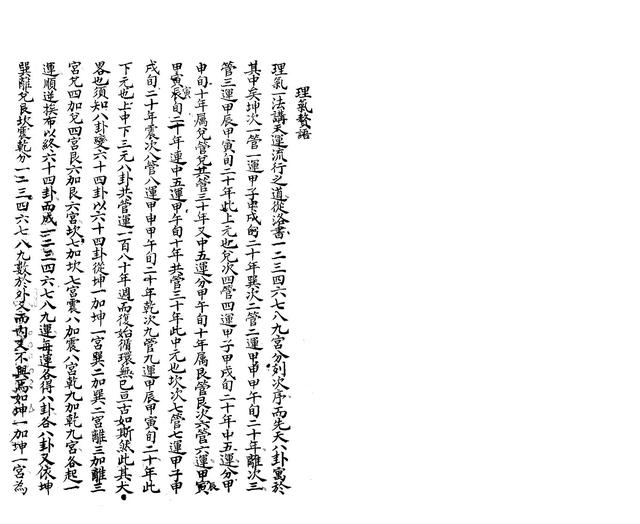 理氣贅語
理氣一法講天運流行之道從洛書一二三四六七八九宮分列次序而先天八卦寓於
其中矣坤次一管一運甲子甲戌旬二十年巽次二管二運甲申甲午旬二十年離次三
管三運甲辰甲寅旬二十年此上元也兌次四管四運甲子甲戌旬二十年中五運分甲
申旬十年属兌管兌共管三十年又中五運分甲午旬十年属艮管艮次六管六運甲寅
甲寅辰旬二十年連中五運甲午旬十年共管三十年此中元也坎次七管七運甲子甲
戌旬二十年震次八管八運甲申甲午旬二十年乾次九管九運甲辰甲寅旬二十年此
下元也上中下三元八卦共管運一百八十年週而復始循環無已亘古如斯然此其大
畧也須知八卦變六十四卦以六十四卦從坤一加坤一宮巽二加巽二宮離三加離三
宮兌四加兌四宮艮六加艮六宮坎七加坎七宮震八加震八宮乾九加乾九宮各起一
運順逆挨布以終六十四卦而成一二三四六七八九運每運各得八卦各八卦又依坤
巽離兌艮坎震乾分一二三四六七八九數於外又而內爻不與焉如坤一加坤一宮為